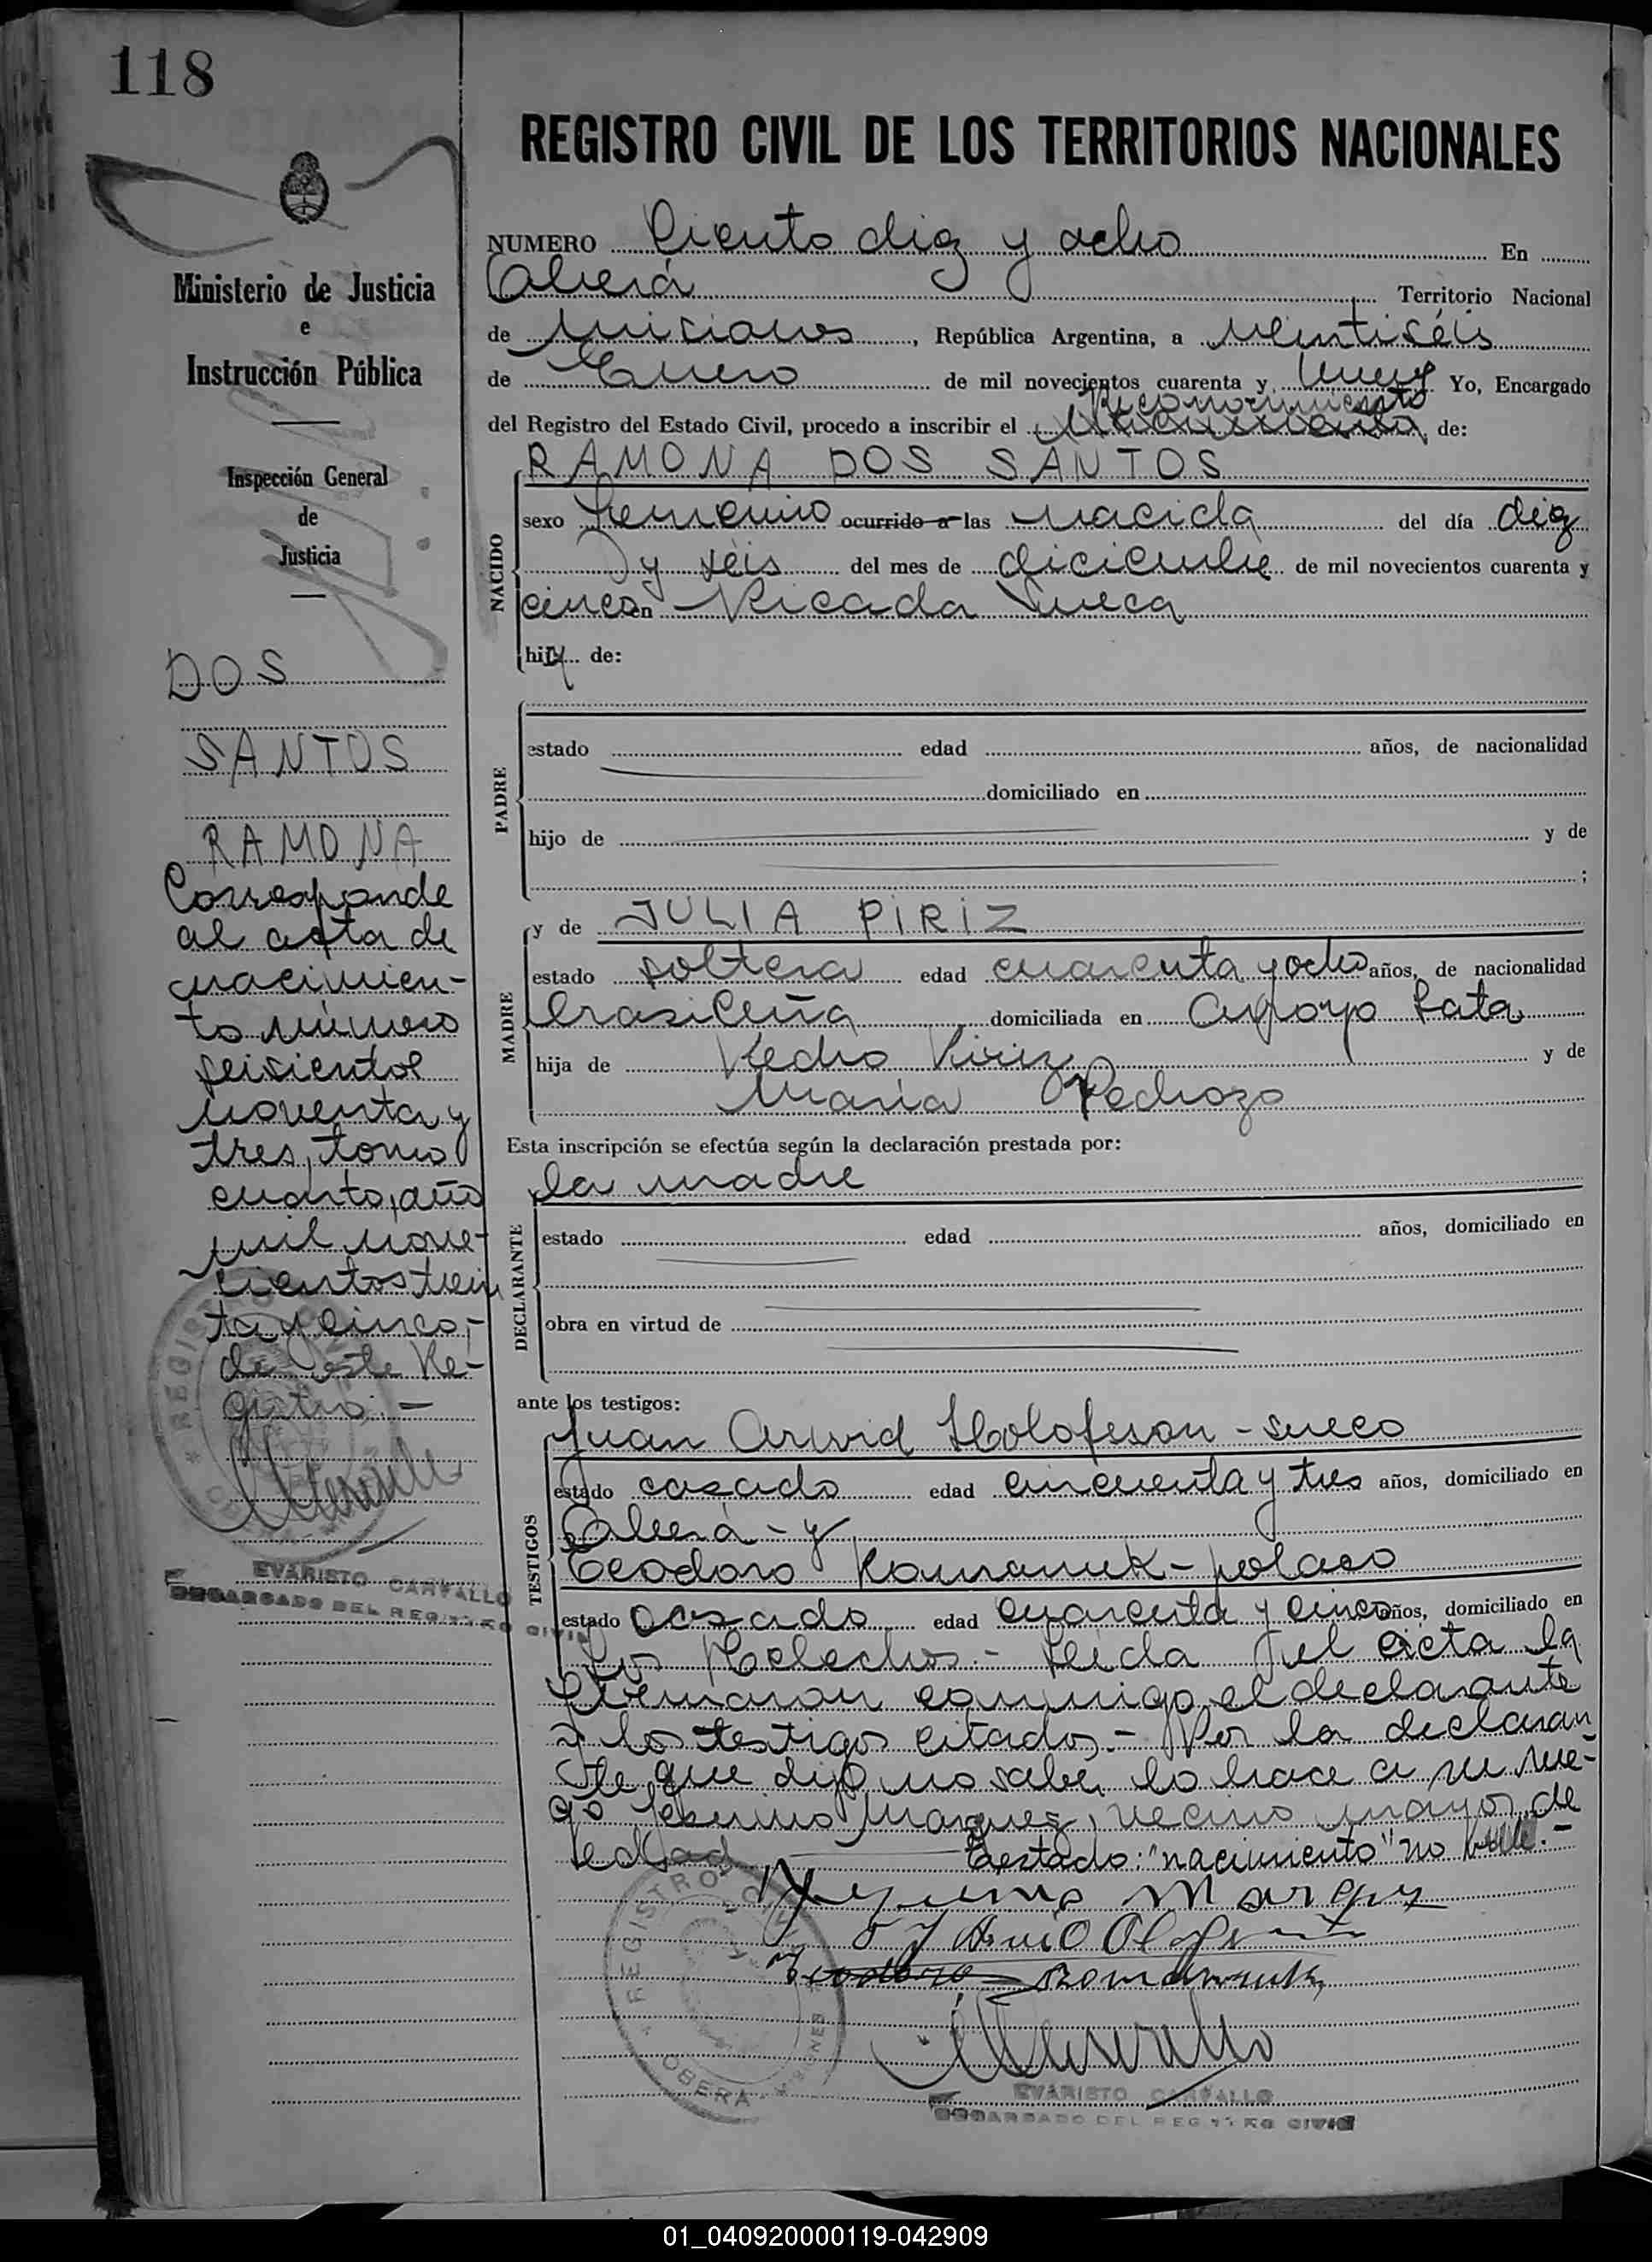 118
REGISTRO CIVIL DE LOS TERRITORIOS NACIONALES
Ministerio de Justicia
e
Instrucción Pública
Inspección General
de
Justicia
DOS
SANTOS
RAMONA
Corresponde
al acta de
nacimien-
to número
seisientos
noventa y
tres, tomo
cuarto, año
mil nove-
cientos trein
ta y cinco,-
de este Re-
gistro.-
EVARISTO CARVALLO
ENCARGADO DEL REGISTRO CIVIL
NUMERO Ciento diez y ocho En
Oberá Territorio Nacional
de Misiones, República Argentina, a veintiséis
de Enero de mil novecientos cuarenta y nueve Yo, Encargado
Reconocimiento
del Registro del Estado Civil, procedo a inscribir el Nacimiento, de:
NACIDO
RAMONA DOS SANTOS
sexo femenino ocurrido a las nacida del día diez
y séis del mes de diciembre de mil novecientos cuarenta y
cinco en Picada Sueca
hija de:
PADRE
estado edad años, de nacionalidad
domiciliado en
hijo de y de
;
MADRE
y de JULIA PIRIZ
estado soltera edad cuarenta y ocho años, de nacionalidad
brasileña domiciliada en Arroyo Tata
hija de Pedro Piriz y de
María Pedrozo
Esta inscripción se efectúa según la declaración prestada por:
DECLARANTE
la madre
estado edad años, domiciliado en
obra en virtud de
ante los testigos:
TESTIGOS
Juan Arwid Holofeson - sueco
estado casado edad cincuenta y tres años, domiciliado en
Oberá - y
Teodoro Romaniuk - polaco
estado casado edad cuarenta y cinco años, domiciliado en
Los Helechos.- Leída el acta la
firmaron conmigo el declarante
y los testigos citados.- Por la declaran
te que dijo no saber lo hace a su rue-
go Marquez, vecino mayor de
edad Testado: "nacimiento" no vale.-
Marquez
Teodoro Romaniuk
REGISTRO CIVIL
OBERA
MISIONES
EVARISTO CARVALLO
ENCARGADO DEL REGISTRO CIVIL
01_040920000119-042909